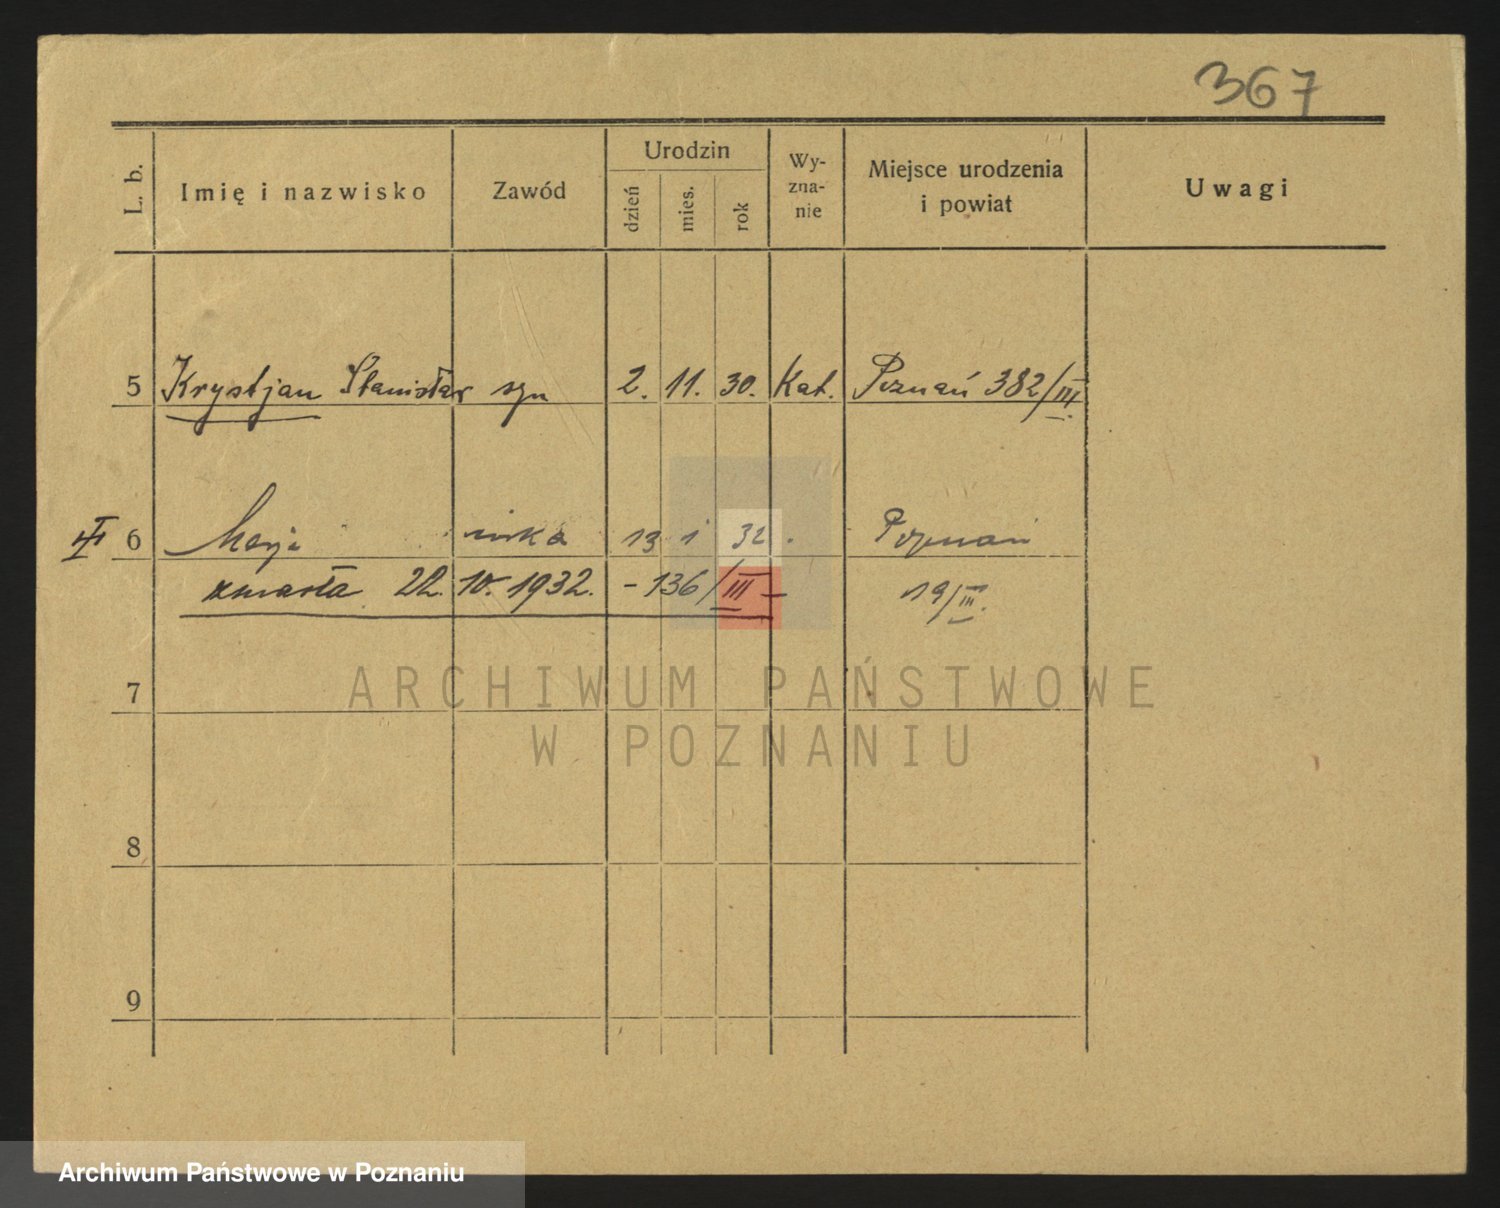 367
L. b. Imię i nazwisko Zawód Urodzin dzień mies. rok Wy-zna-nie Miejsce urodzenia i powiat Uwagi
5 Krystjan Stanisław syn 2. 11. 30. Kat. Poznań 382/III.
6 Marja córka 13 1 32 Poznań
zmarła 22. 10. 1932. - 136/III - 19/III.
7
8
9
ARCHIWUM PAŃSTWOWE
W POZNANIU
Archiwum Państwowe w Poznaniu